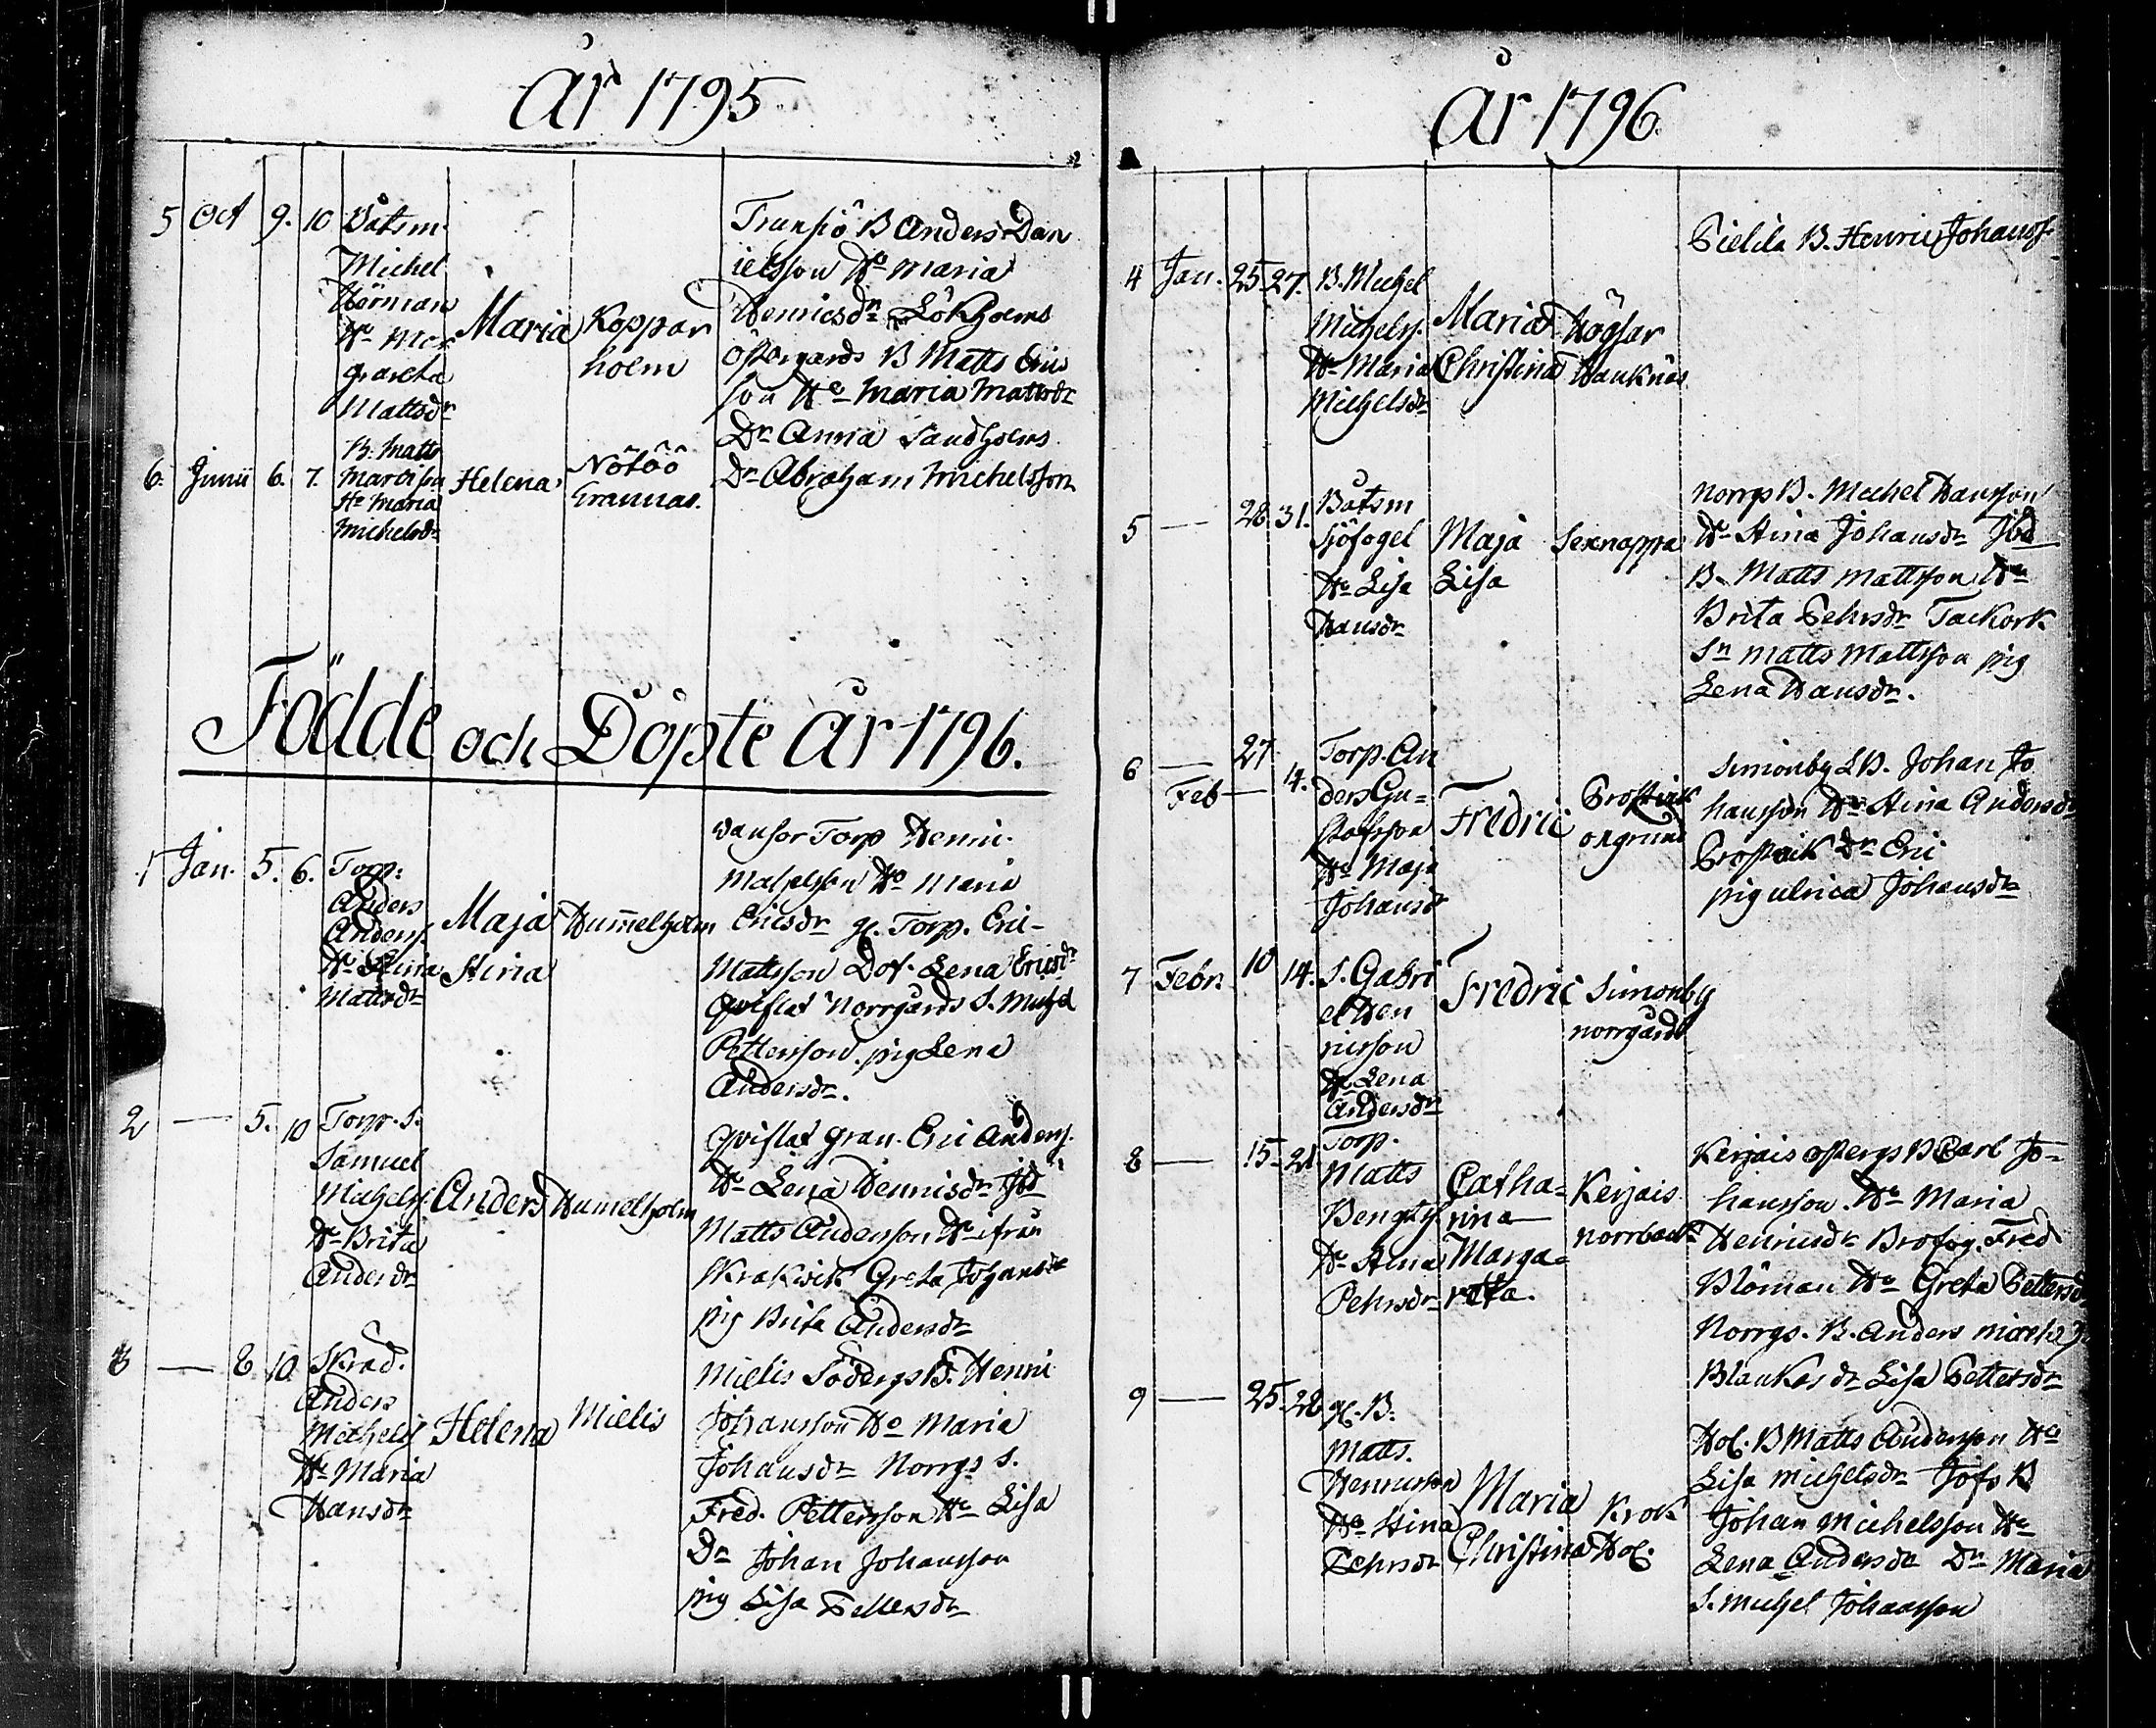 År 1795
5 Oct 9. 10 Båtsm.
Michel
Hörman
Hu Mar
gareta
Mattsdr
Maria
Koppar
holm
Trunsö B Anders Dan
ielsson Hu Maria
Henricsdr Lökholms
Östergårds B Matts Erics
son Hu Maria Mattsdr
Dr Anna Sandholms
Dr Abraham Michelsson
6. Junii 6. 7. B. Matts
Hu Maria
Michelsdr
Helena
Nötöö
Födde och Döpte År 1796.
1 Jan. 5. 6. Torp.
Anders
Anderss.
Hu Stina
Mattsdr
Maja
Stina
Hummelholm
Torp Henric
Hu Maria
Ericsdr gl. Torp. Eric
Mattsson Dot. Lena Ericsdr
Qviflax Norrgårds S. Michel
Pettersson pig Lena
Andersdr.
2 — 5. 10 Torp. S.
Samuel
Michelss.
Hu Brita
Andersdr
Anders
Humelholm
Qviflax gran. Eric Anderss.
Hu Lena Henricsdr Ibd
Matts Andersson Hu ifrån
Krakvik Greta Johansdr
pig Brita Andersdr
3 — 8 10. Skräd.
Anders
Michelss
Hu Maria
Hansdr
Helena
Mielis
Mielis Södergs B. Henric
Johansson Hu Maria
Johansdr Norrgs S.
Fred. Pettersson Hu Lisa
Dr Johan Johansson
pig Lisa Pettersdr
År 1796.
Pielila B. Henric Johanss.
4 Jan. 25. 27. B. Michel
Michelss.
Hu Maria
Michelsdr
Maria
Christina
Högsar
Hauknäs
5 — 28. 31. Båtsm
Sjöfogel
Hu Lisa
Hansdr
Maja
Lisa
Sexnappa
Norrgs B. Michel Hansson
Hu Stina Johansdr Ibd
B. Matts Mattsson Hu
Brita Pehrsdr Tackork
Sn Matts Mattsson pig
Lena Hansdr.
6 — 27
Feb — 14. Torp. An
ders Gu=
stafsson
Hu Maja
Johansdr
Fredric
Prostvik
Simonby B. Johan Jo
hansson Hu Stina Andersdr
Prostvik Dr Eric
pig Ulrica Johansdr
7 Febr. 10 14. S. Gabri
el Hen
ricsson
Hu Lena
Andersdr
Fredric
Simonby
norrgårds
8 — 15. 21. Torp.
Matts
Bengtss
Hu Stina
Pehrsdr
Catha=
rina
Marga=
reta.
Kerjais
norrback
Kerjais östergs B Carl Jo=
hansson. Hu Maria
Henricsdr Brofog. Fred
Blöman Hu Greta Pettersdr
Norrgs. B. Anders
Blankas dr Lisa Pettersdr
9 — 25. 28 gl. B.
Matts.
Henricsson
Hu Stina
Pehrsdr
Maria
Christina
Krok
Hol.
Hol. B Matts Andersson Hu
Lisa Michelsdr Töfs B
Johan Michelsson Hu
Lena Andersdr Dr Maria
S. Michel Johansson